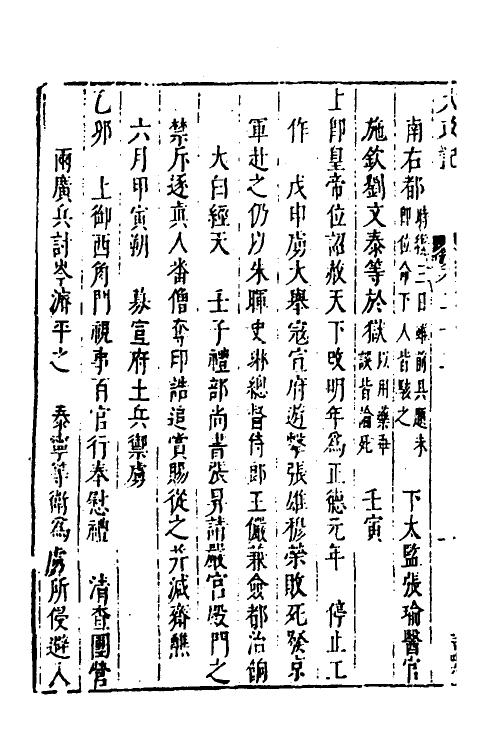 大政記
南右都時後二日猶前具題未即位命下人皆駭之　下太監張瑜醫官
施欽劉文泰等於獄以用藥舛誤皆論死　壬寅
上卽皇帝位詔赦天下改明年為正德元年　停止工
作　戊申虜大舉寇宣府遊擊張雄穆榮敗死發京
軍赴之仍以朱暉史琳總督侍郎王儼兼僉都治餉
太白經天　壬子禮部尚書張昇請嚴宮殿門之
禁斥逐真人番僧奪印誥追賞賜從之并減齋醮
六月甲寅朔　募宣府土兵禦虜
乙卯　上御西角門視事百官行奉慰禮　清查團營
兩廣兵討岑濬平之　泰寧等衛為虜所侵避入